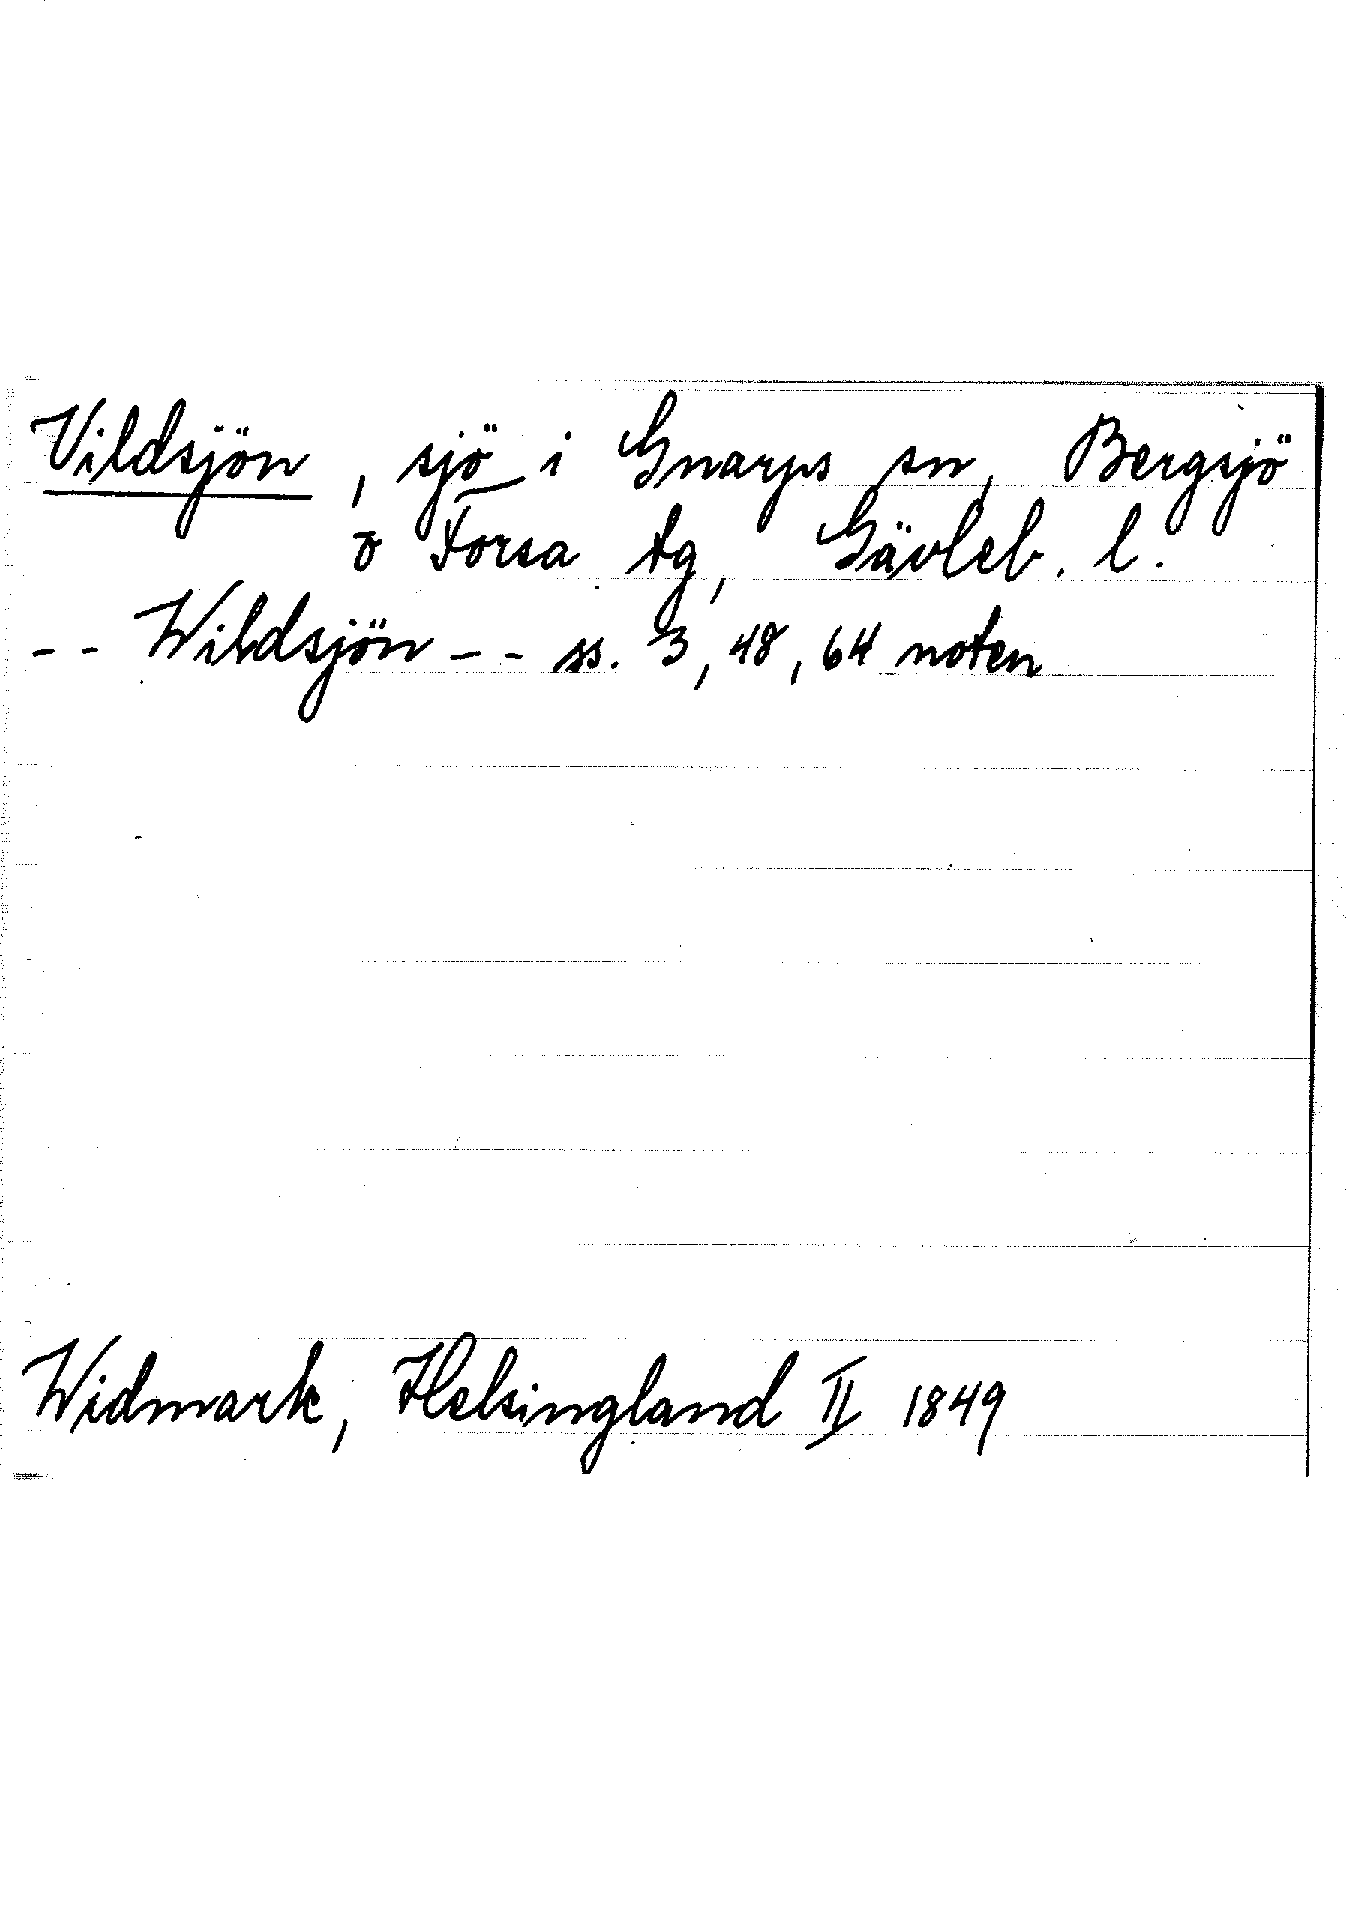 Vildsjön, sjö i Gnarps sn, Bergsjö
o Forsa tg, Gävleb. l.
-- Wildsjön -- ss. 3, 48, 64 noten
Widmark, Helsingland II 1849